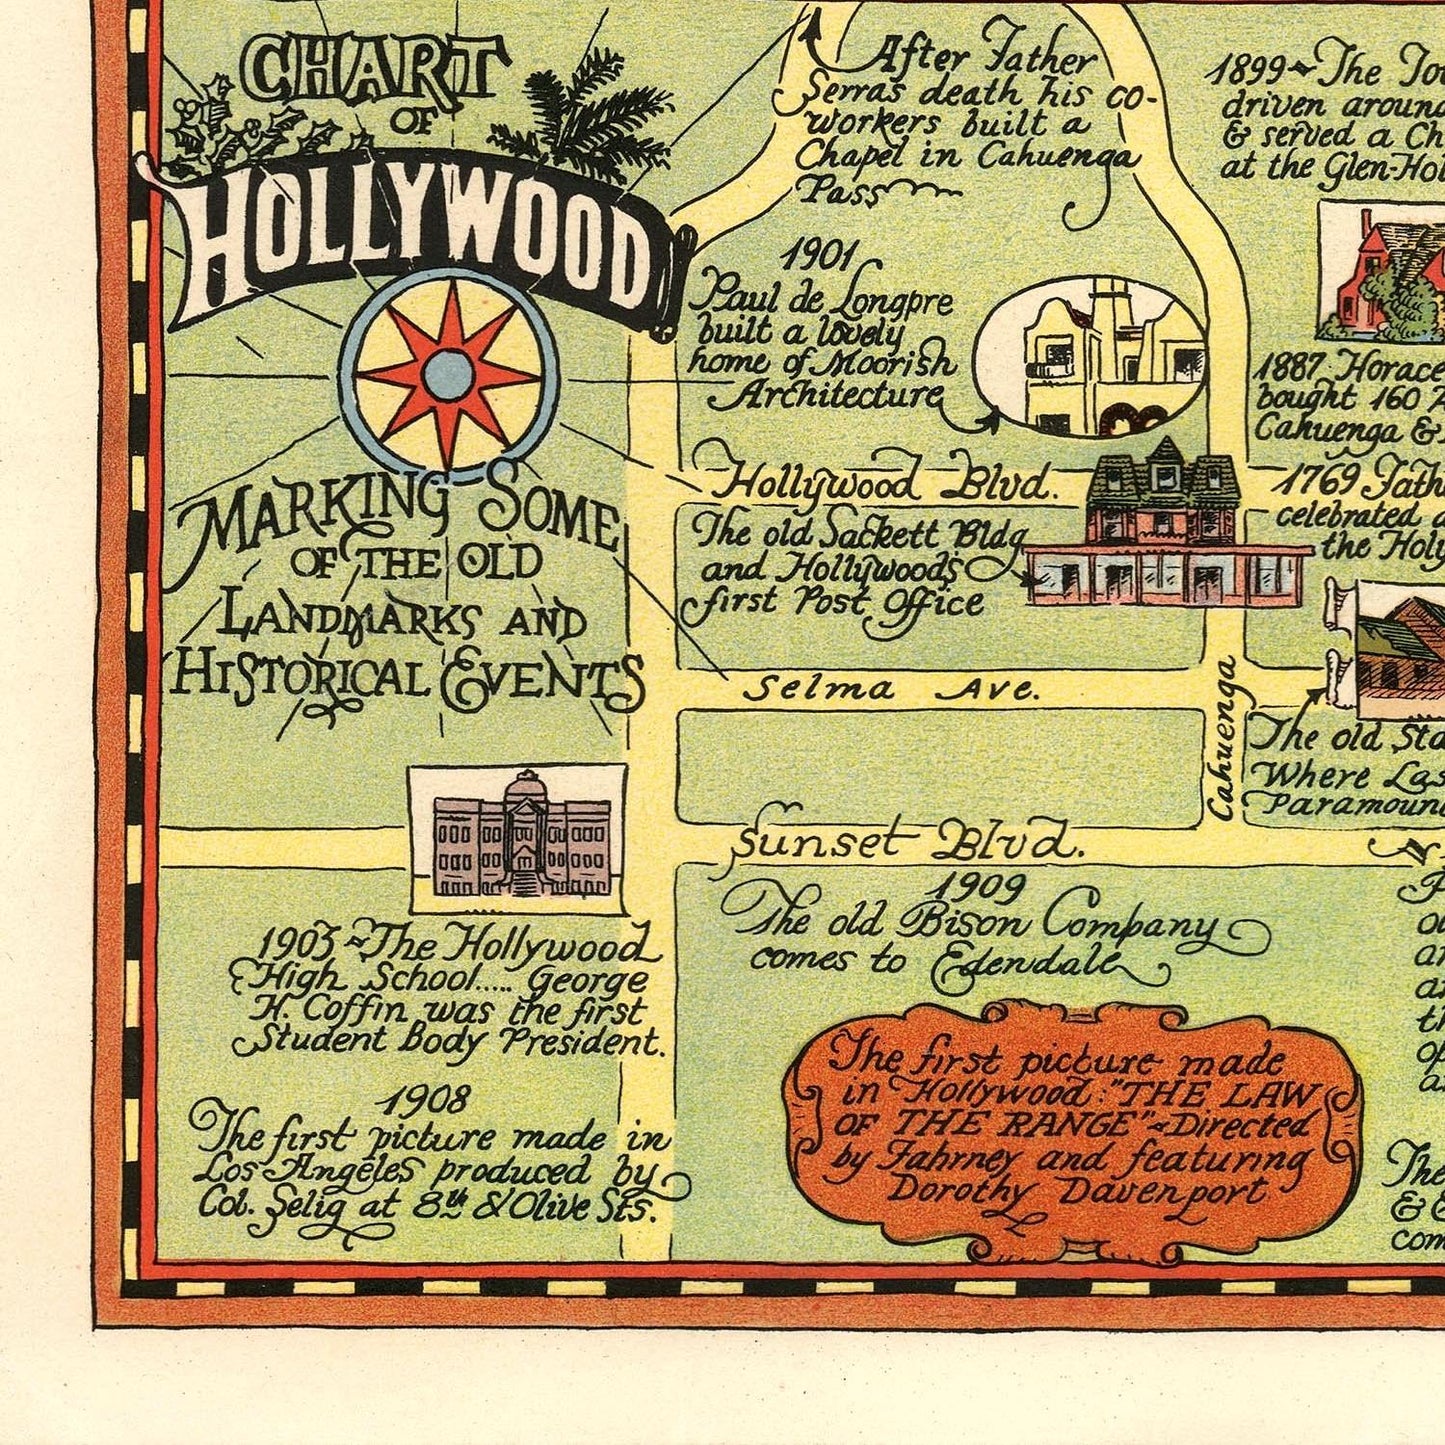 CHART
OF
HOLLYWOOD
MARKING SOME
OF THE OLD
LANDMARKS AND
HISTORICAL EVENTS
After Father
Serras death his co-
workers built a
Chapel in Cahuenga
Pass
1901
Paul de Longpre
built a lovely
home of Moorish
Architecture
Hollywood Blvd.
The old Sackett Bldg
and Hollywoods
first Post Office
Selma Ave.
Cahuenga
Sunset Blvd.
1909
The old Bison Company
comes to Edendale
The first picture made
in Hollywood: "THE LAW
OF THE RANGE" ~ Directed
by Fahrney and featuring
Dorothy Davenport
1903 ~ The Hollywood
High School..... George
H. Coffin was the first
Student Body President.
1908
The first picture made in
Los Angeles produced by
Col. Selig at 8th & Olive Sts.
1899 ~ The
driven around
& served a
at the
1887 Horace
bought 160
Cahuenga &
1769
celebrated
the
The old
Where
The
&